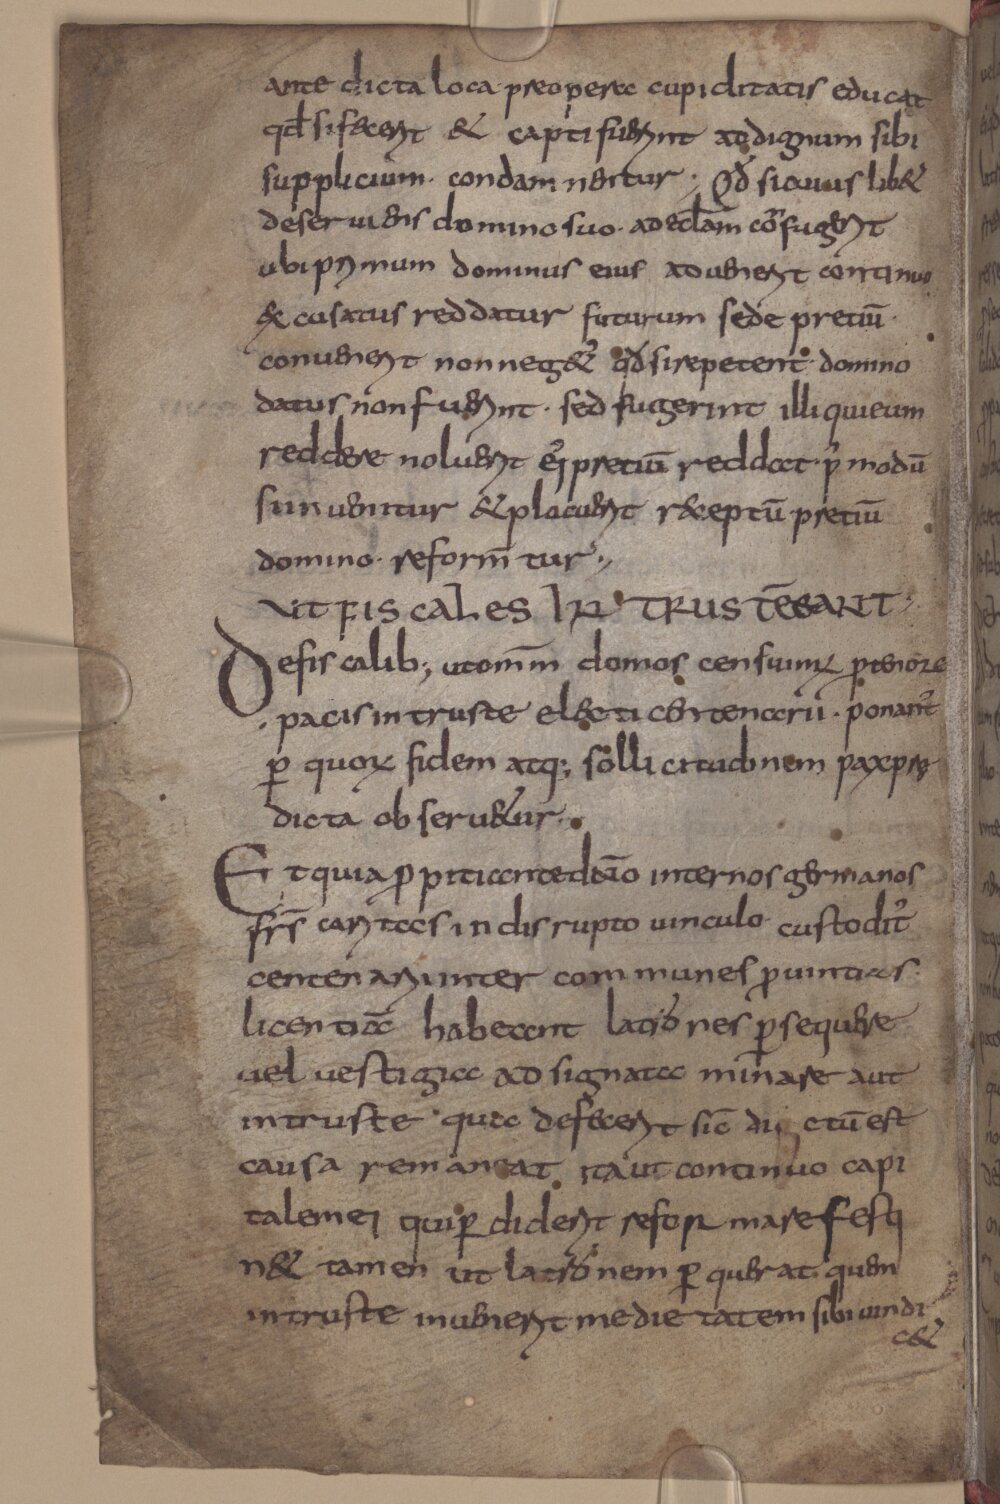 ante dicta loca preopere cupiditatis educat
qđ si fecerit & capti fuerint ad dignum sibi
supplicium· condamnentur; Qđ si cuius lib&
deserviens domino suo· ad eclam cōfugerit
ubi primum dominus eius advenerit continuo
excusatus reddatur futurum sede pretiū·
convenerit non neg&ʳ qđ si repetenti· domino
datus non fuerint· sed fugerint illi qui eum
reddere noluerit ei pretiū reddat· p modū
si invenitur & placuerit r&eptū pretiū
domino· reformtur·,
VIT FISCALES IN TRUSTE EANT
De fiscalib; ut omm domos censuimʳ p tenore
pacis in truste electi centenarii· ponant
p quorʳ fidem atq; sollicitudinem pax pre
dicta observ&ur·
Et quia ppitiante dō inter nos germanos
frs caritas indisrupto vinculo custodit
centenarii inter communes pvintias·
licentiā habeant latrones psequere
vel vestigia adsignata minare aut
in truste qua defecerit sic dictū est
causa remaneat ita ut continuo capi
talem ei qui pdiderit reformare festi
n& tamen ut latronem pquerat quem
in truste invenerit medietatem sibi vindi
c&